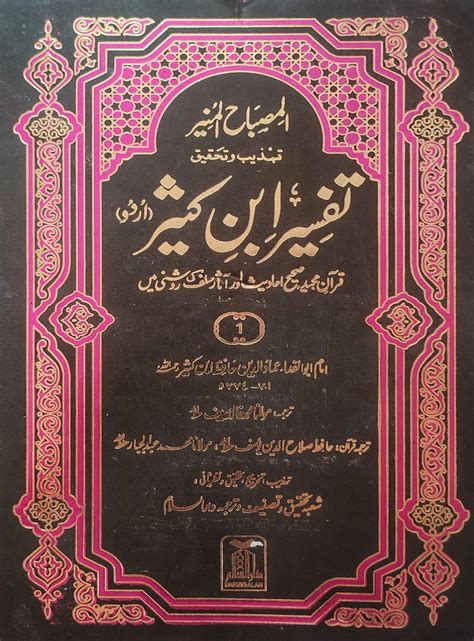 المصباح المنیر
تہذیب و تحقیق
تفسیر ابن کثیر (اُردُو)
قرآن مجید، صحیح احادیث اور آثار سلف کی روشنی میں
1
امام ابوالفداء عماد الدین حافظ ابن کثیر رحمہ اللہ
۷۰۱-۷۷۴ھ
ترجمہ: مولانا محمد خالد سیف
ترجمہ قرآن: حافظ صلاح الدین یوسف، مولانا محمد عبدالجبار
تہذیب، تخریج، تحقیق و نظرثانی:
شعبۂ تحقیق و تصنیف و ترجمہ دارالسلام
DARUSSALAM